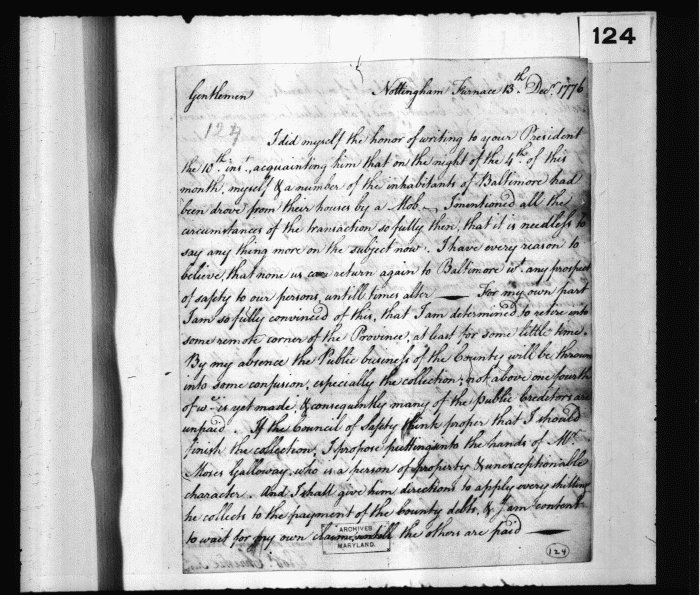 124
Gentlemen Nottingham Furnace 13th. Decr. 1776
124
I did myself the honor of writing to your President
the 10th. inst., acquainting him that on the night of the 4th. of this
month, myself & a number of the inhabitants of Baltimore had
been drove from their houses by a Mob. — I mentioned all the
circumstances of the transaction so fully then, that it is needless to
say any thing more on the subject now. I have every reason to
believe, that none us can return again to Baltimore wt. any prospect
of safety to our persons, untill times alter — For my own part
I am so fully convinced of this, that I am determined to retire into
some remote corner of the Province, at least for some little time.
By my absence the Public business of the County will be thrown
into some confusion, especially the collection; not above one fourth
of wch. is yet made, & consequently many of the public Creditors are
unpaid. If the Council of Safety think proper that I should
finish the collection, I propose putting into the hands of Mr.
Moses Galloway, who is a person of property & unexceptionable
character. And I shall give him directions to apply every shilling
he collects to the payment of the County debts, & I am content
to wait for my own claims, untill the others are paid —
ARCHIVES
MARYLAND.
124